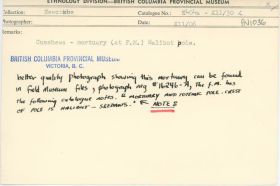 ETHNOLOGY DIVISION—BRITISH COLUMBIA PROVINCIAL MUSEUM
Collection: Catalogue No.
Photographer: Date: PN1036
Remarks:
Cumshewa - mortuary (at F.M.) Halibut pole.
BRITISH COLUMBIA PROVINCIAL MUSEUM
VICTORIA, B. C.
better quality photograph showing this mortuary can be found
in Field Museum files, photograph neg # 16246-A, The F.M. has
the following catalogue notes. "MORTUARY AND TOTEMIC POLE. CREST
OF POLE IS HALIBUT - SKEDANS." NOTE S